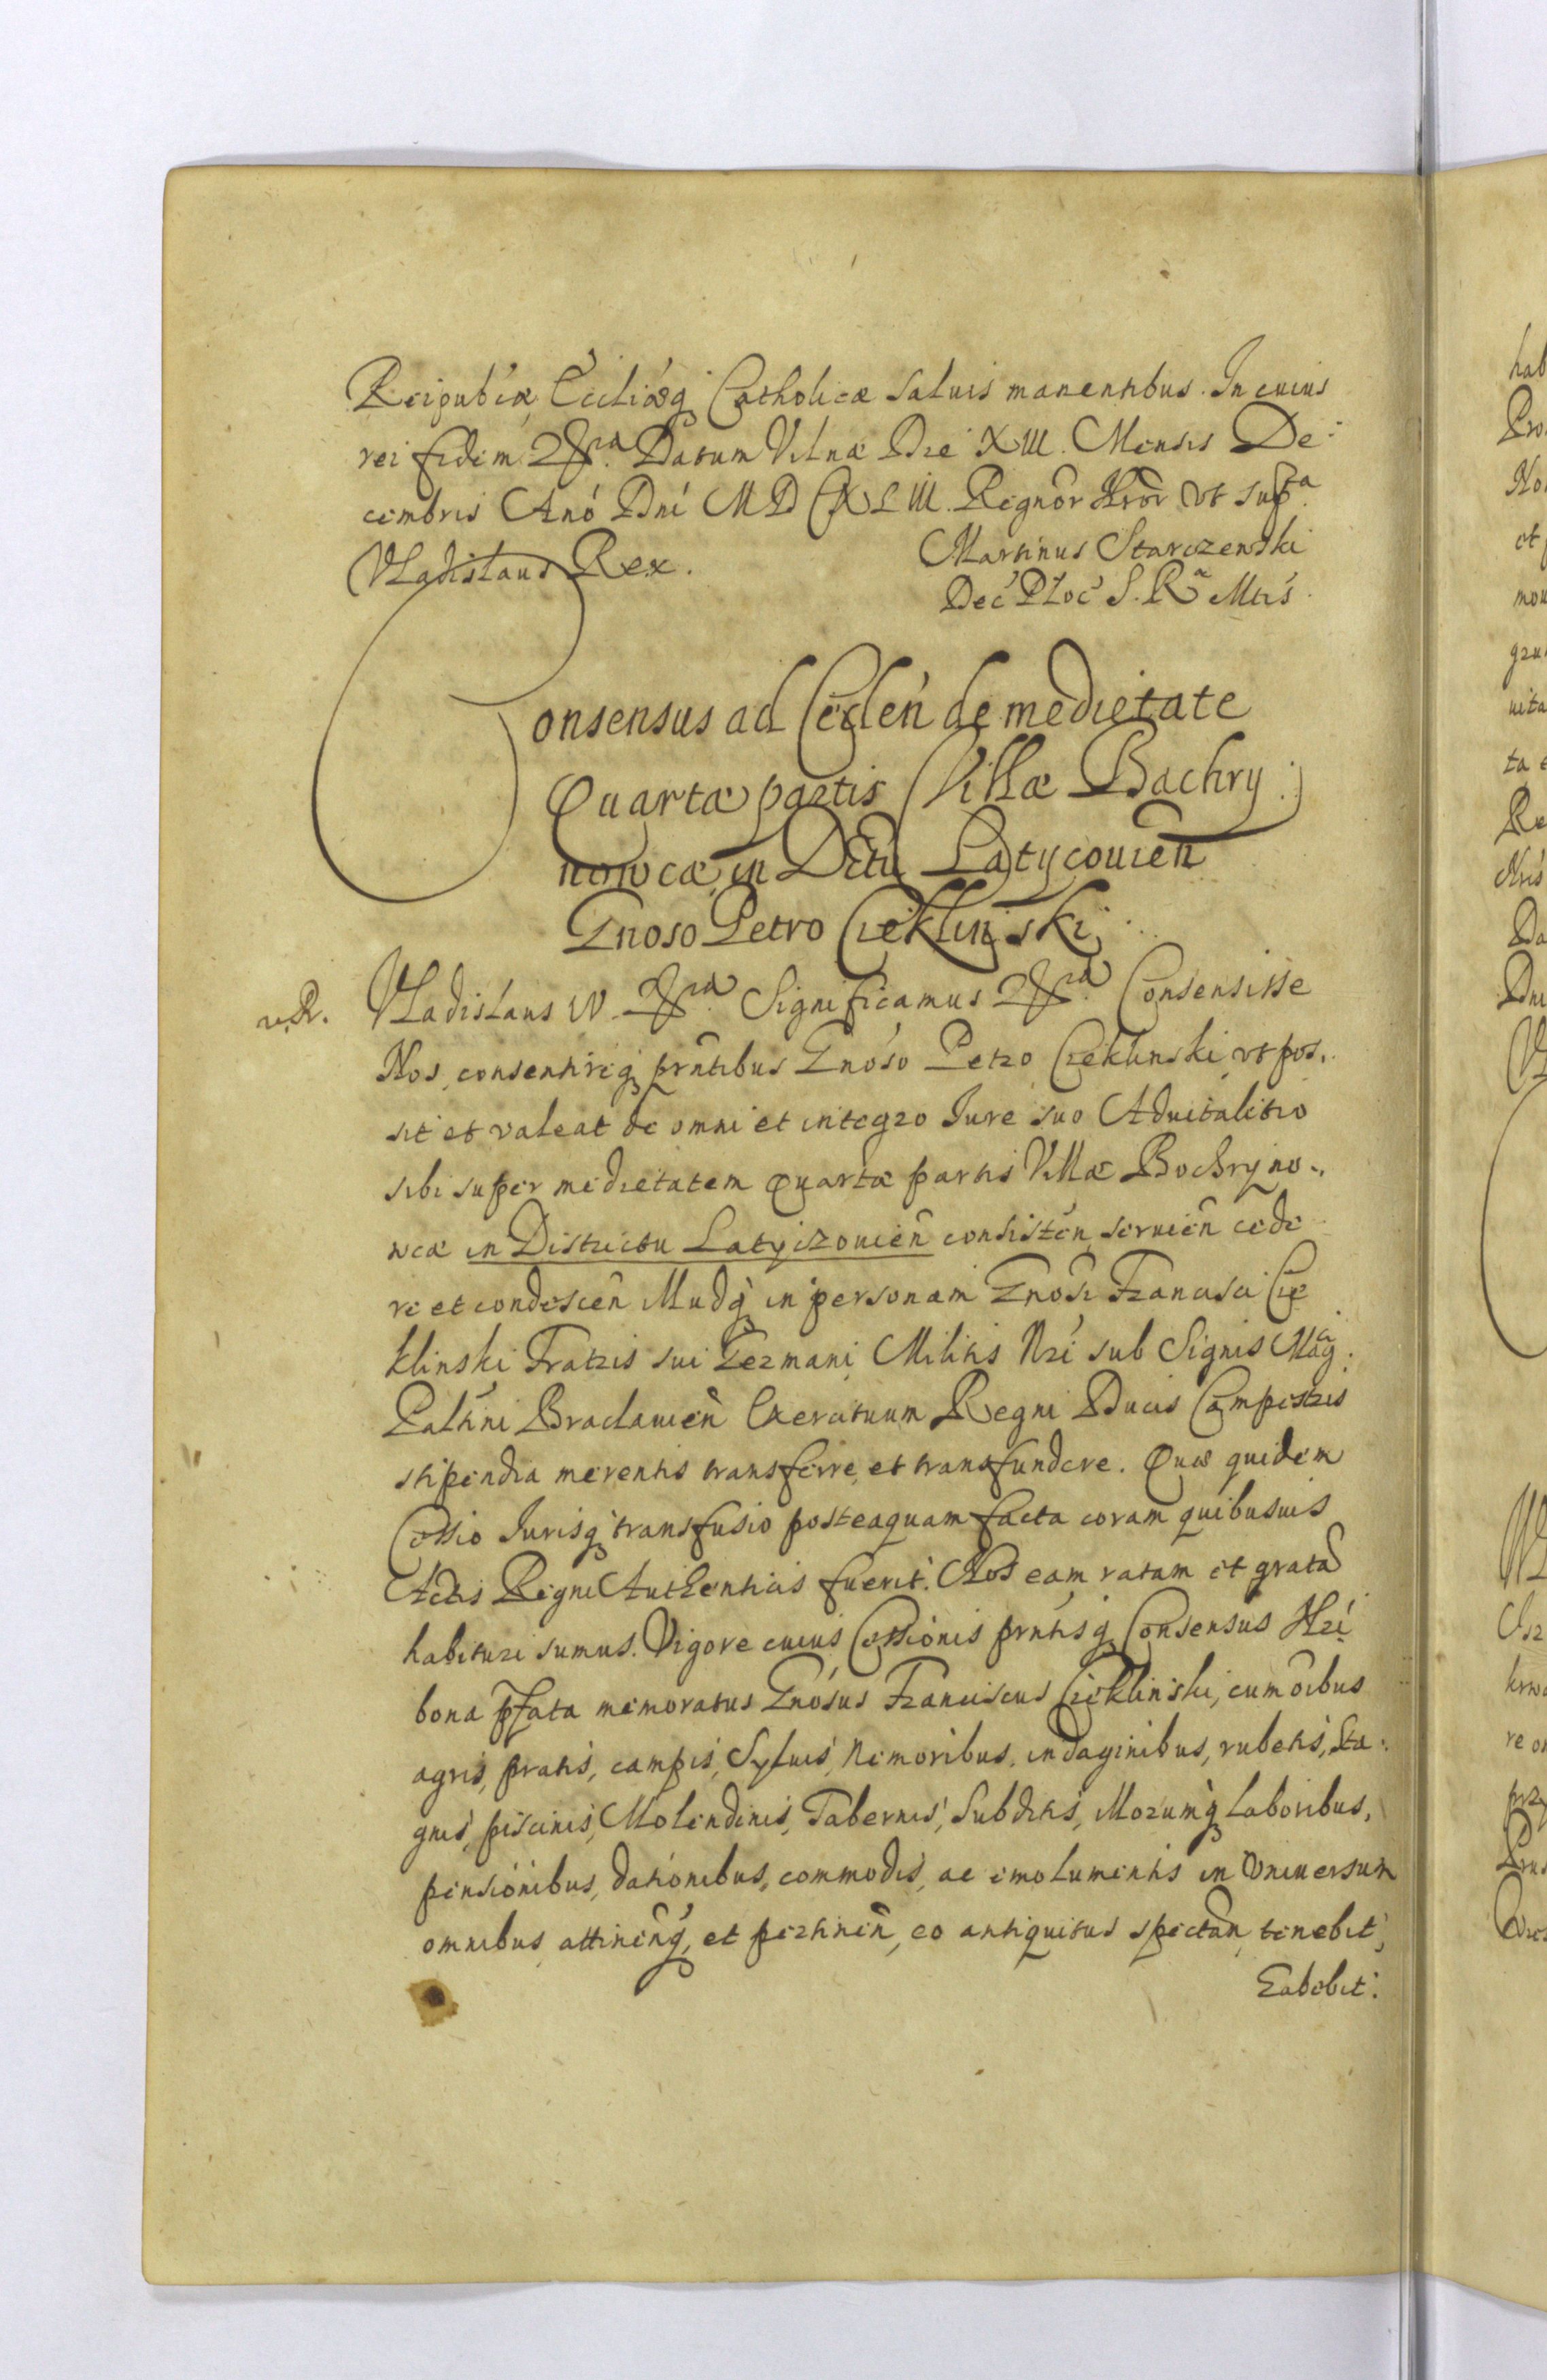 Reipubcæ Eccliæq Catholicæ saluis manentibus. In cuius
rei fidem Datum Vilnæ Die XIII. Mensis De:
cembris Anó Dni MDCXLIII. Regnor Nror vt supra
Martinus Starczewski
Vladislaus Rex.
Dec Ploc S. Ræ Mtis
Consensus ad Cedén de medietate
Quartæ partis Villæ Bachry:
nowcæ in Dctu Latycouien
Gnoso Petro Ciekliński
Vladislaus IV Significamus Consensisse
Nos, consentireq prntibus Gnoso Petro Ciekliński, vt pos.
sit et valeat de omni et integro Iure suo Aduitalitio
sibi super medietatem quartæ partis Villæ Bochryno.
wcæ in Districtu Latyczouien consisten, seruien cede
re et condescen Mudq in personam Gnosi Francisci Cie
klinski Fratris sui Germani Militis Nri sub Signis Mag.
Paltini Braclauien Exercituum Regni Ducis Campestris
stipendia merentis transferre, et transfundere. Quæ quidem
Cessio Iurisq transfusio posteaquam facta coram quibusuis
Actis Regni Authenticis fuerit. Nos eam ratam et gratã
habituri sumus. Vigore cuius Cessionis prntisq Consensus Nri
bona pfata memoratus Gnosus Franciscus Ciekliński, cum oibus
agris, pratis, campis, Syluis, Nemoribus, indaginibus, rubetis, Sta:
gnis, piscinis, Molendinis, Tabernis, Subditis, illorumq laboribus,
pensionibus, dationibus, commodis, ac emolumentis in vniuersum
omnibus, attinenq, et pertinen, eo antiquitus spectan, tenebit,
habebit.